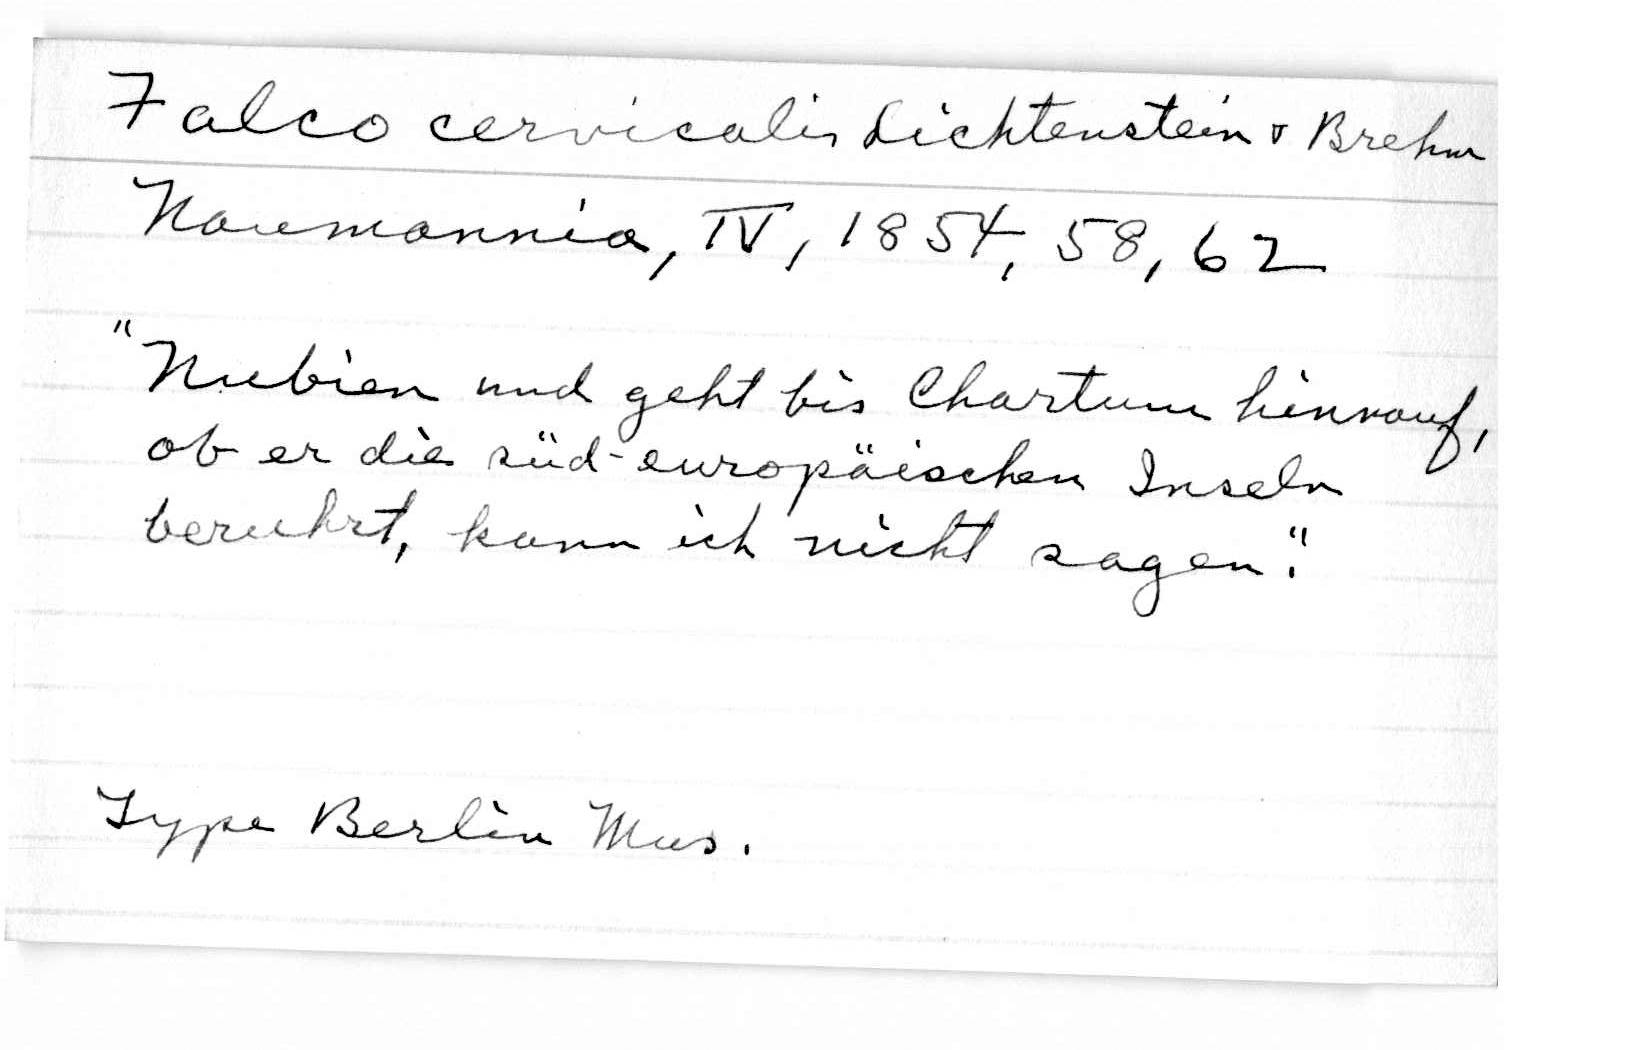 Falco cervicalis Lichtenstein & Brehm
Naumannia, IV, 1854, 58, 62
"Nubien und geht bis Chartum hinnauf,
ob er die süd-europäischen Inseln
beruhrt, kann ich nicht sagen."
Type Berlin Mus.